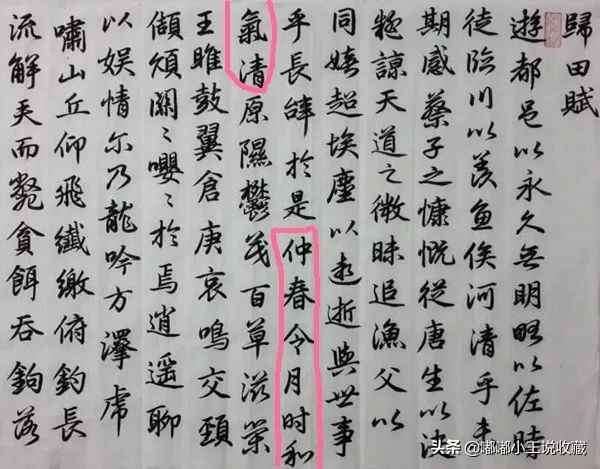 歸田賦
遊都邑以永久無明略以佐時
徒臨川以羨魚俟河清乎未
期感蔡子之慷慨從唐生以決
疑諒天道之微昧追漁父以
同嬉超埃塵以遐逝與世事
乎長辭於是仲春令月时和
氣清原隰鬱茂百草滋榮
王雎鼓翼倉庚哀鳴交頸
頡頏關々嚶々於焉逍遥聊
以娛情尔乃龍吟方澤虎
嘯山丘仰飛纖繳俯釣長
流觸矢而斃貪餌吞鉤落
头条 @嘟嘟小王说收藏